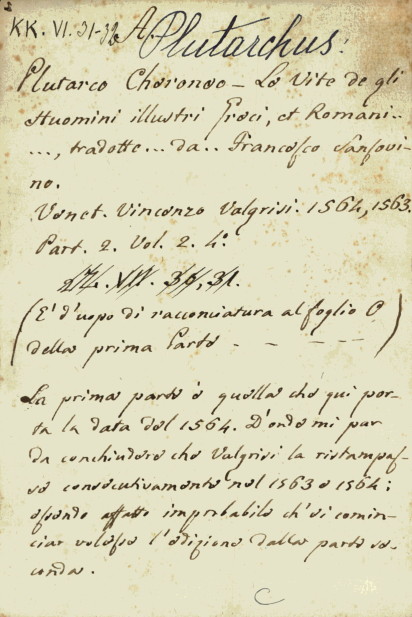 KK. VI. 31-32 A Plutarchus.
Plutarco Cheroneo - Le Vite de gli
Huomini illustri Greci, et Romani..
..., tradotte... da.. Francesco Sansovi-
no.
Venet. Vincenzo Valgrisi. 1564, 1563.
Part. 2. Vol. 2. 4.°
(E' d'uopo di racconciatura al foglio O
della prima Parte - - - -)
La prima parte è quella che qui por-
ta la data del 1564. D'onde mi par
da conchiudere che Valgrisi la ristampas-
se consecutivamente nel 1563 e 1564;
essendo affatto improbabile ch'ei comin-
ciar volesse l'edizione dalla parte se-
conda.
C